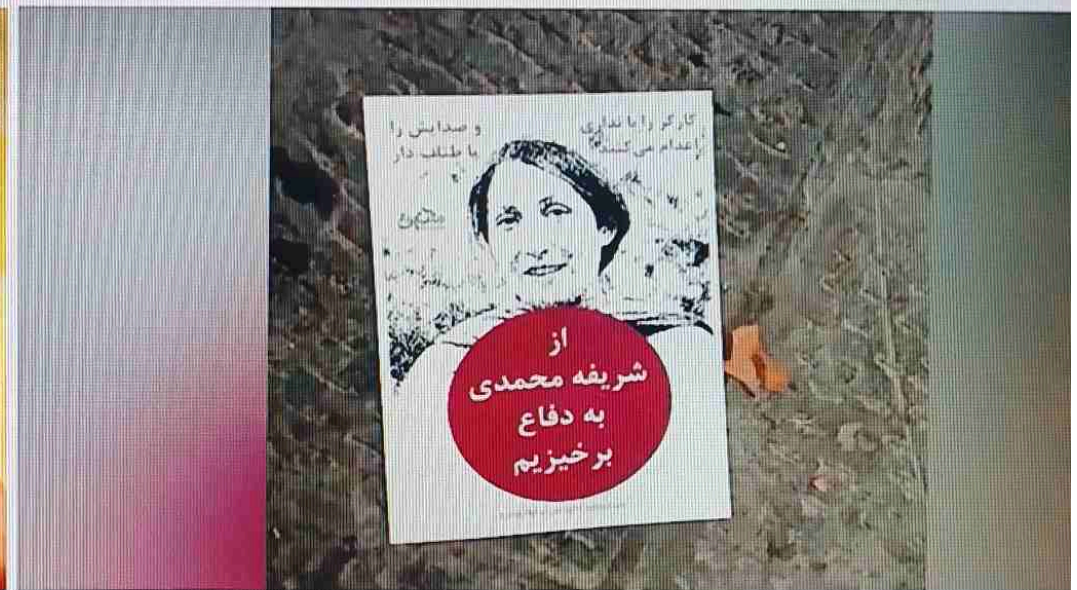 کارگر را با نداری
اعدام می‌کنند
و صدایش را
با طناب دار
از
شریفه محمدی
به دفاع
برخیزیم